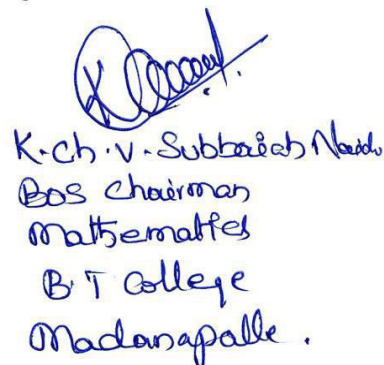 K.Ch.V.Subbaiah Naidu
BOS Chairman
Mathematics
B T College
Madanapalle.